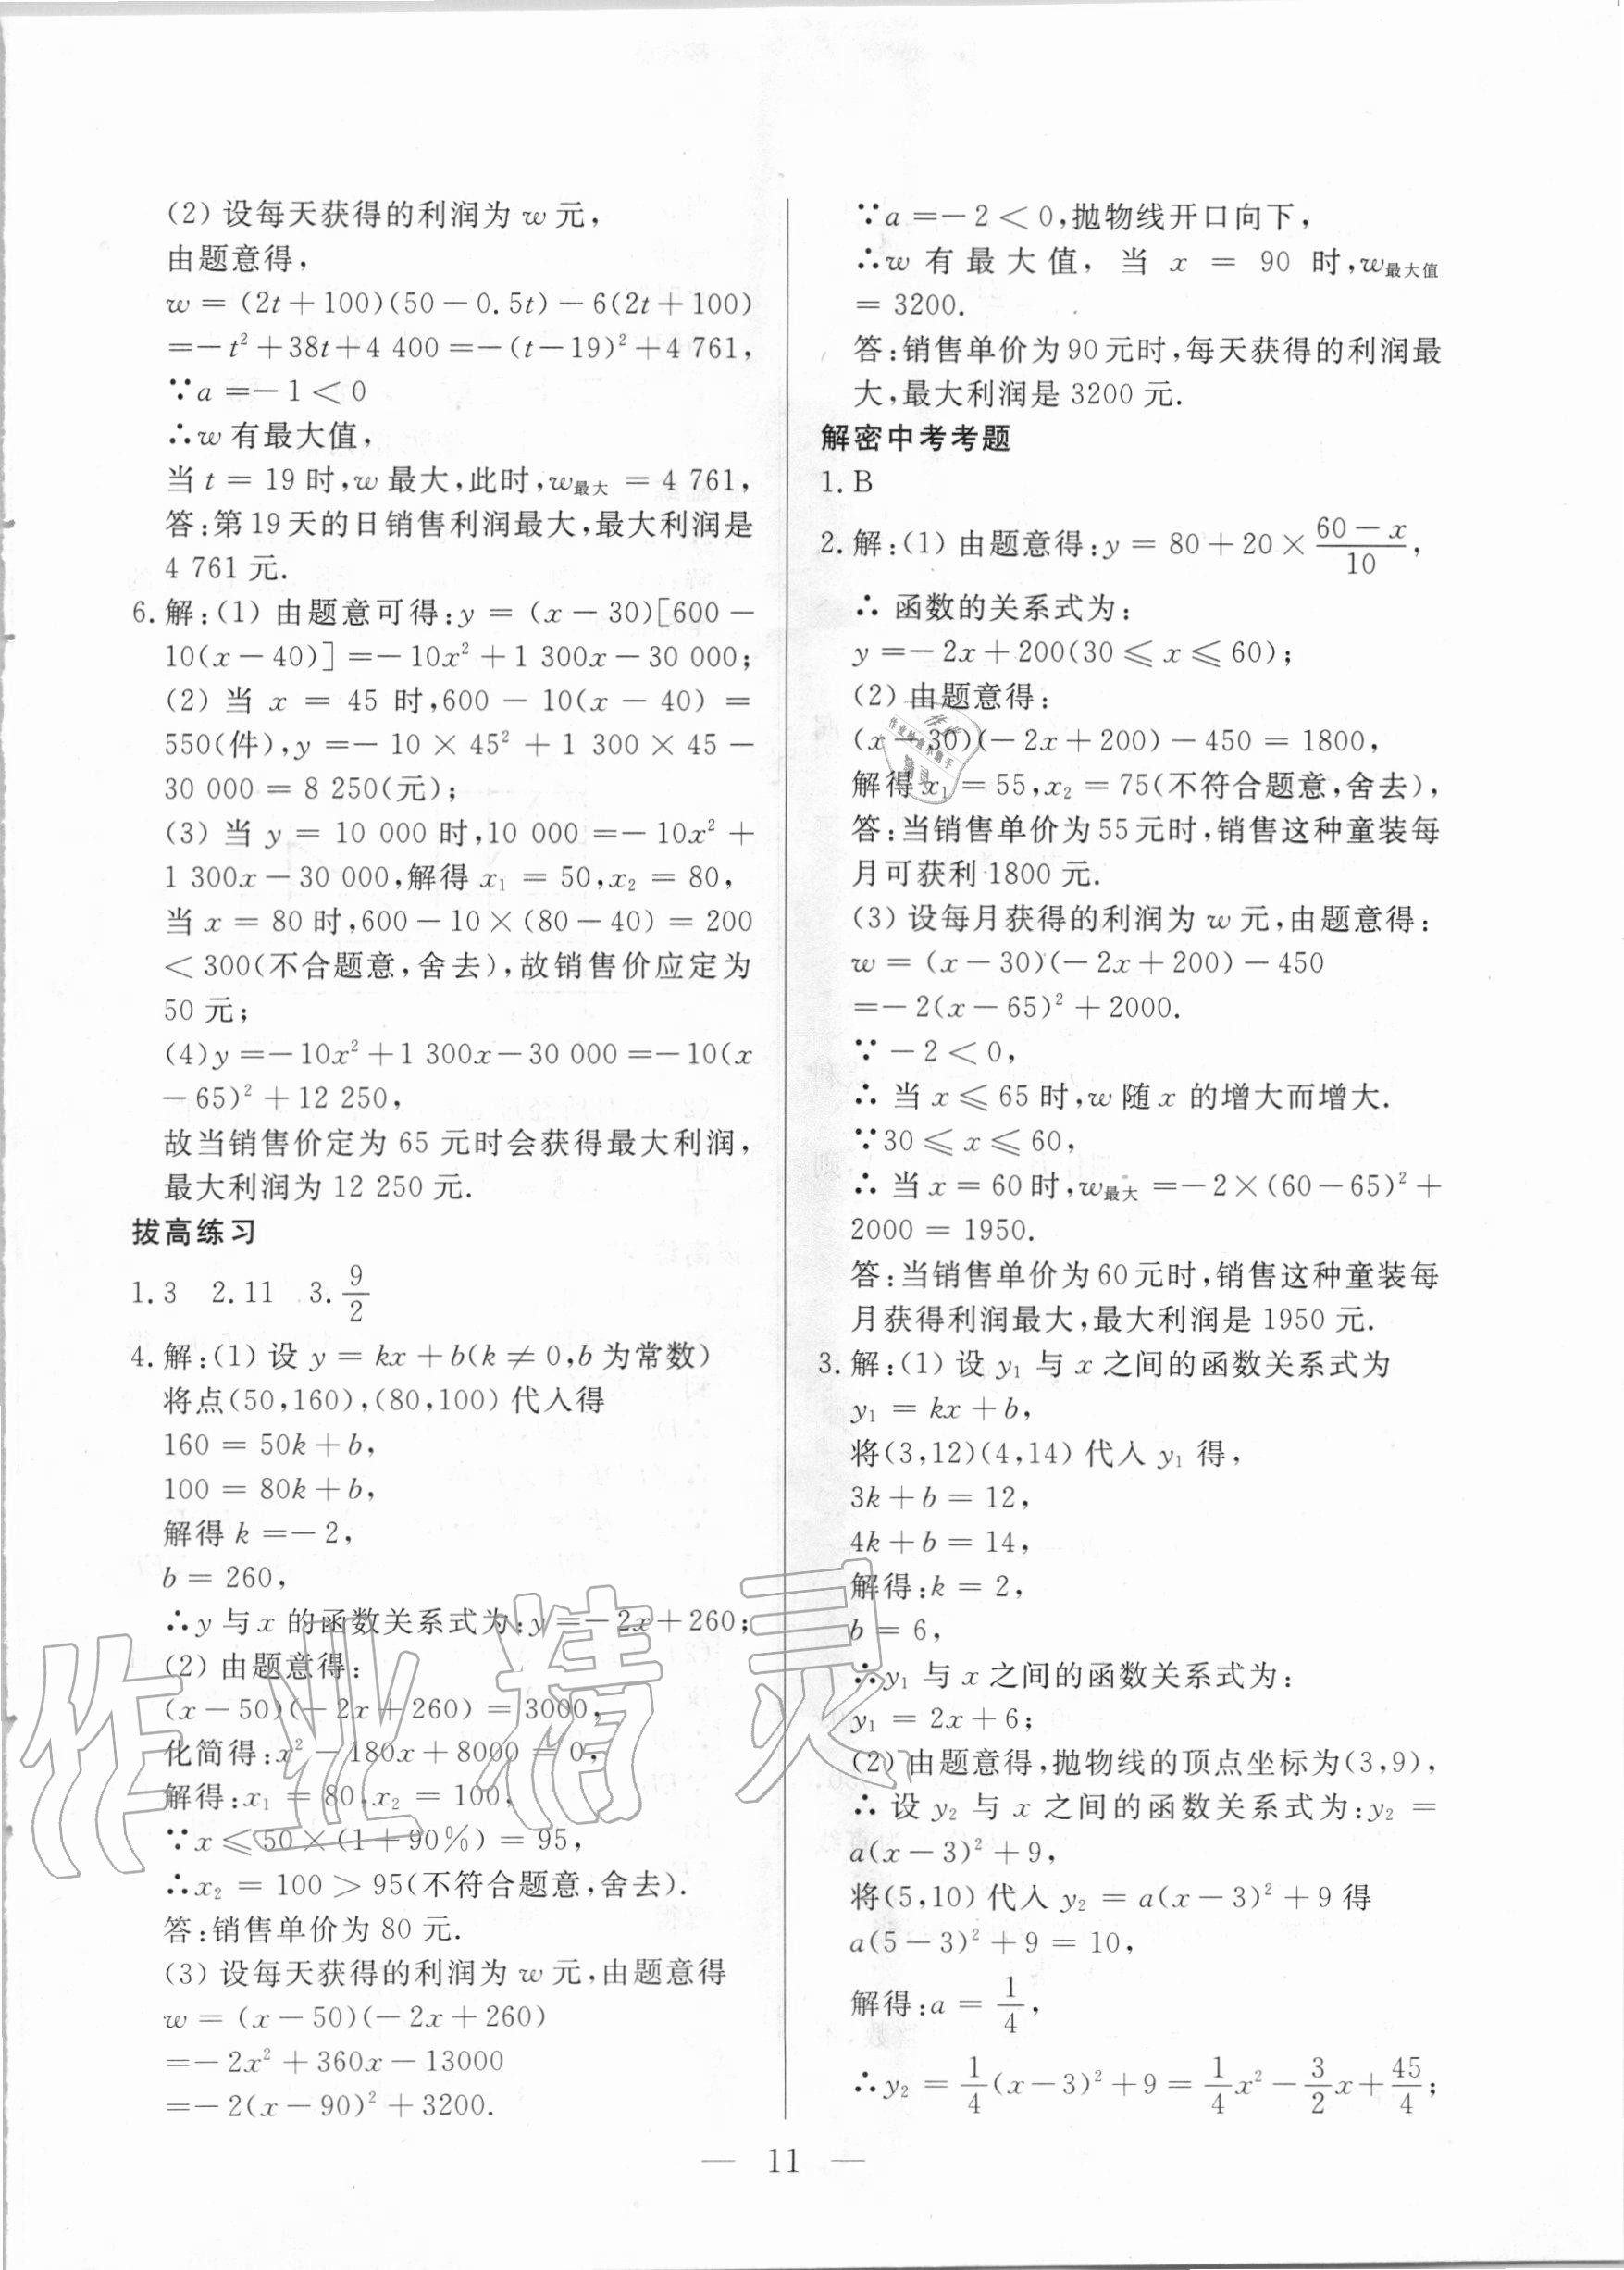 (2) 设每天获得的利润为 w 元，
由题意得，
w = (2t+100)(50-0.5t)-6(2t+100)
=-t²+38t+4 400=-(t-19)²+4 761，
∵a=-1<0
∴w 有最大值，
当 t = 19 时，w 最大，此时，w最大 = 4 761，
答：第 19 天的日销售利润最大，最大利润是
4 761 元.
6. 解：(1) 由题意可得：y = (x-30)[600-
10(x-40)]=-10x²+1 300x-30 000；
(2) 当 x = 45 时，600-10(x-40) =
550(件)，y=-10×45²+1 300×45-
30 000 = 8 250(元)；
(3) 当 y = 10 000 时，10 000=-10x²+
1 300x-30 000，解得 x₁ = 50，x₂ = 80，
当 x = 80 时，600-10×(80-40) = 200
<300(不合题意，舍去)，故销售价应定为
50 元；
(4)y=-10x²+1 300x-30 000=-10(x
-65)²+12 250，
故当销售价定为 65 元时会获得最大利润，
最大利润为 12 250 元.
拔高练习
1.3 2.11 3. 9/2
4. 解：(1) 设 y = kx+b(k≠0，b 为常数)
将点(50,160)，(80,100) 代入得
160 = 50k+b，
100 = 80k+b，
解得 k=-2，
b = 260，
∴y 与 x 的函数关系式为：y=-2x+260；
(2) 由题意得：
(x-50)(-2x+260) = 3000，
化简得：x²-180x+8000 = 0，
解得：x₁ = 80，x₂ = 100，
∵x≤50×(1+90%) = 95，
∴x₂ = 100 > 95(不符合题意，舍去).
答：销售单价为 80 元.
(3) 设每天获得的利润为 w 元，由题意得
w = (x-50)(-2x+260)
=-2x²+360x-13000
=-2(x-90)²+3200.
∵a=-2<0，抛物线开口向下，
∴w 有最大值，当 x = 90 时，w最大值
= 3200.
答：销售单价为 90 元时，每天获得的利润最
大，最大利润是 3200 元.
解密中考考题
1. B
2. 解：(1) 由题意得：y = 80+20×(60-x)/10，
∴ 函数的关系式为：
y=-2x+200(30≤x≤60)；
(2) 由题意得：
(x-30)(-2x+200)-450 = 1800，
解得 x₁ = 55，x₂ = 75(不符合题意，舍去)，
答：当销售单价为 55 元时，销售这种童装每
月可获利 1800 元.
(3) 设每月获得的利润为 w 元，由题意得：
w = (x-30)(-2x+200)-450
=-2(x-65)²+2000.
∵-2<0，
∴ 当 x≤65 时，w 随 x 的增大而增大.
∵30≤x≤60，
∴ 当 x = 60 时，w最大=-2×(60-65)²+
2000 = 1950.
答：当销售单价为 60 元时，销售这种童装每
月获得利润最大，最大利润是 1950 元.
3. 解：(1) 设 y₁ 与 x 之间的函数关系式为
y₁ = kx+b，
将(3,12)(4,14) 代入 y₁ 得，
3k+b = 12，
4k+b = 14，
解得：k = 2，
b = 6，
∴y₁ 与 x 之间的函数关系式为：
y₁ = 2x+6；
(2) 由题意得，抛物线的顶点坐标为(3,9)，
∴ 设 y₂ 与 x 之间的函数关系式为：y₂ =
a(x-3)²+9，
将(5,10) 代入 y₂ = a(x-3)²+9 得
a(5-3)²+9 = 10，
解得：a = 1/4，
∴y₂ = 1/4(x-3)²+9 = 1/4x²-3/2x+45/4；
— 11 —
作业精灵